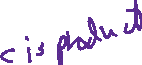 c is product